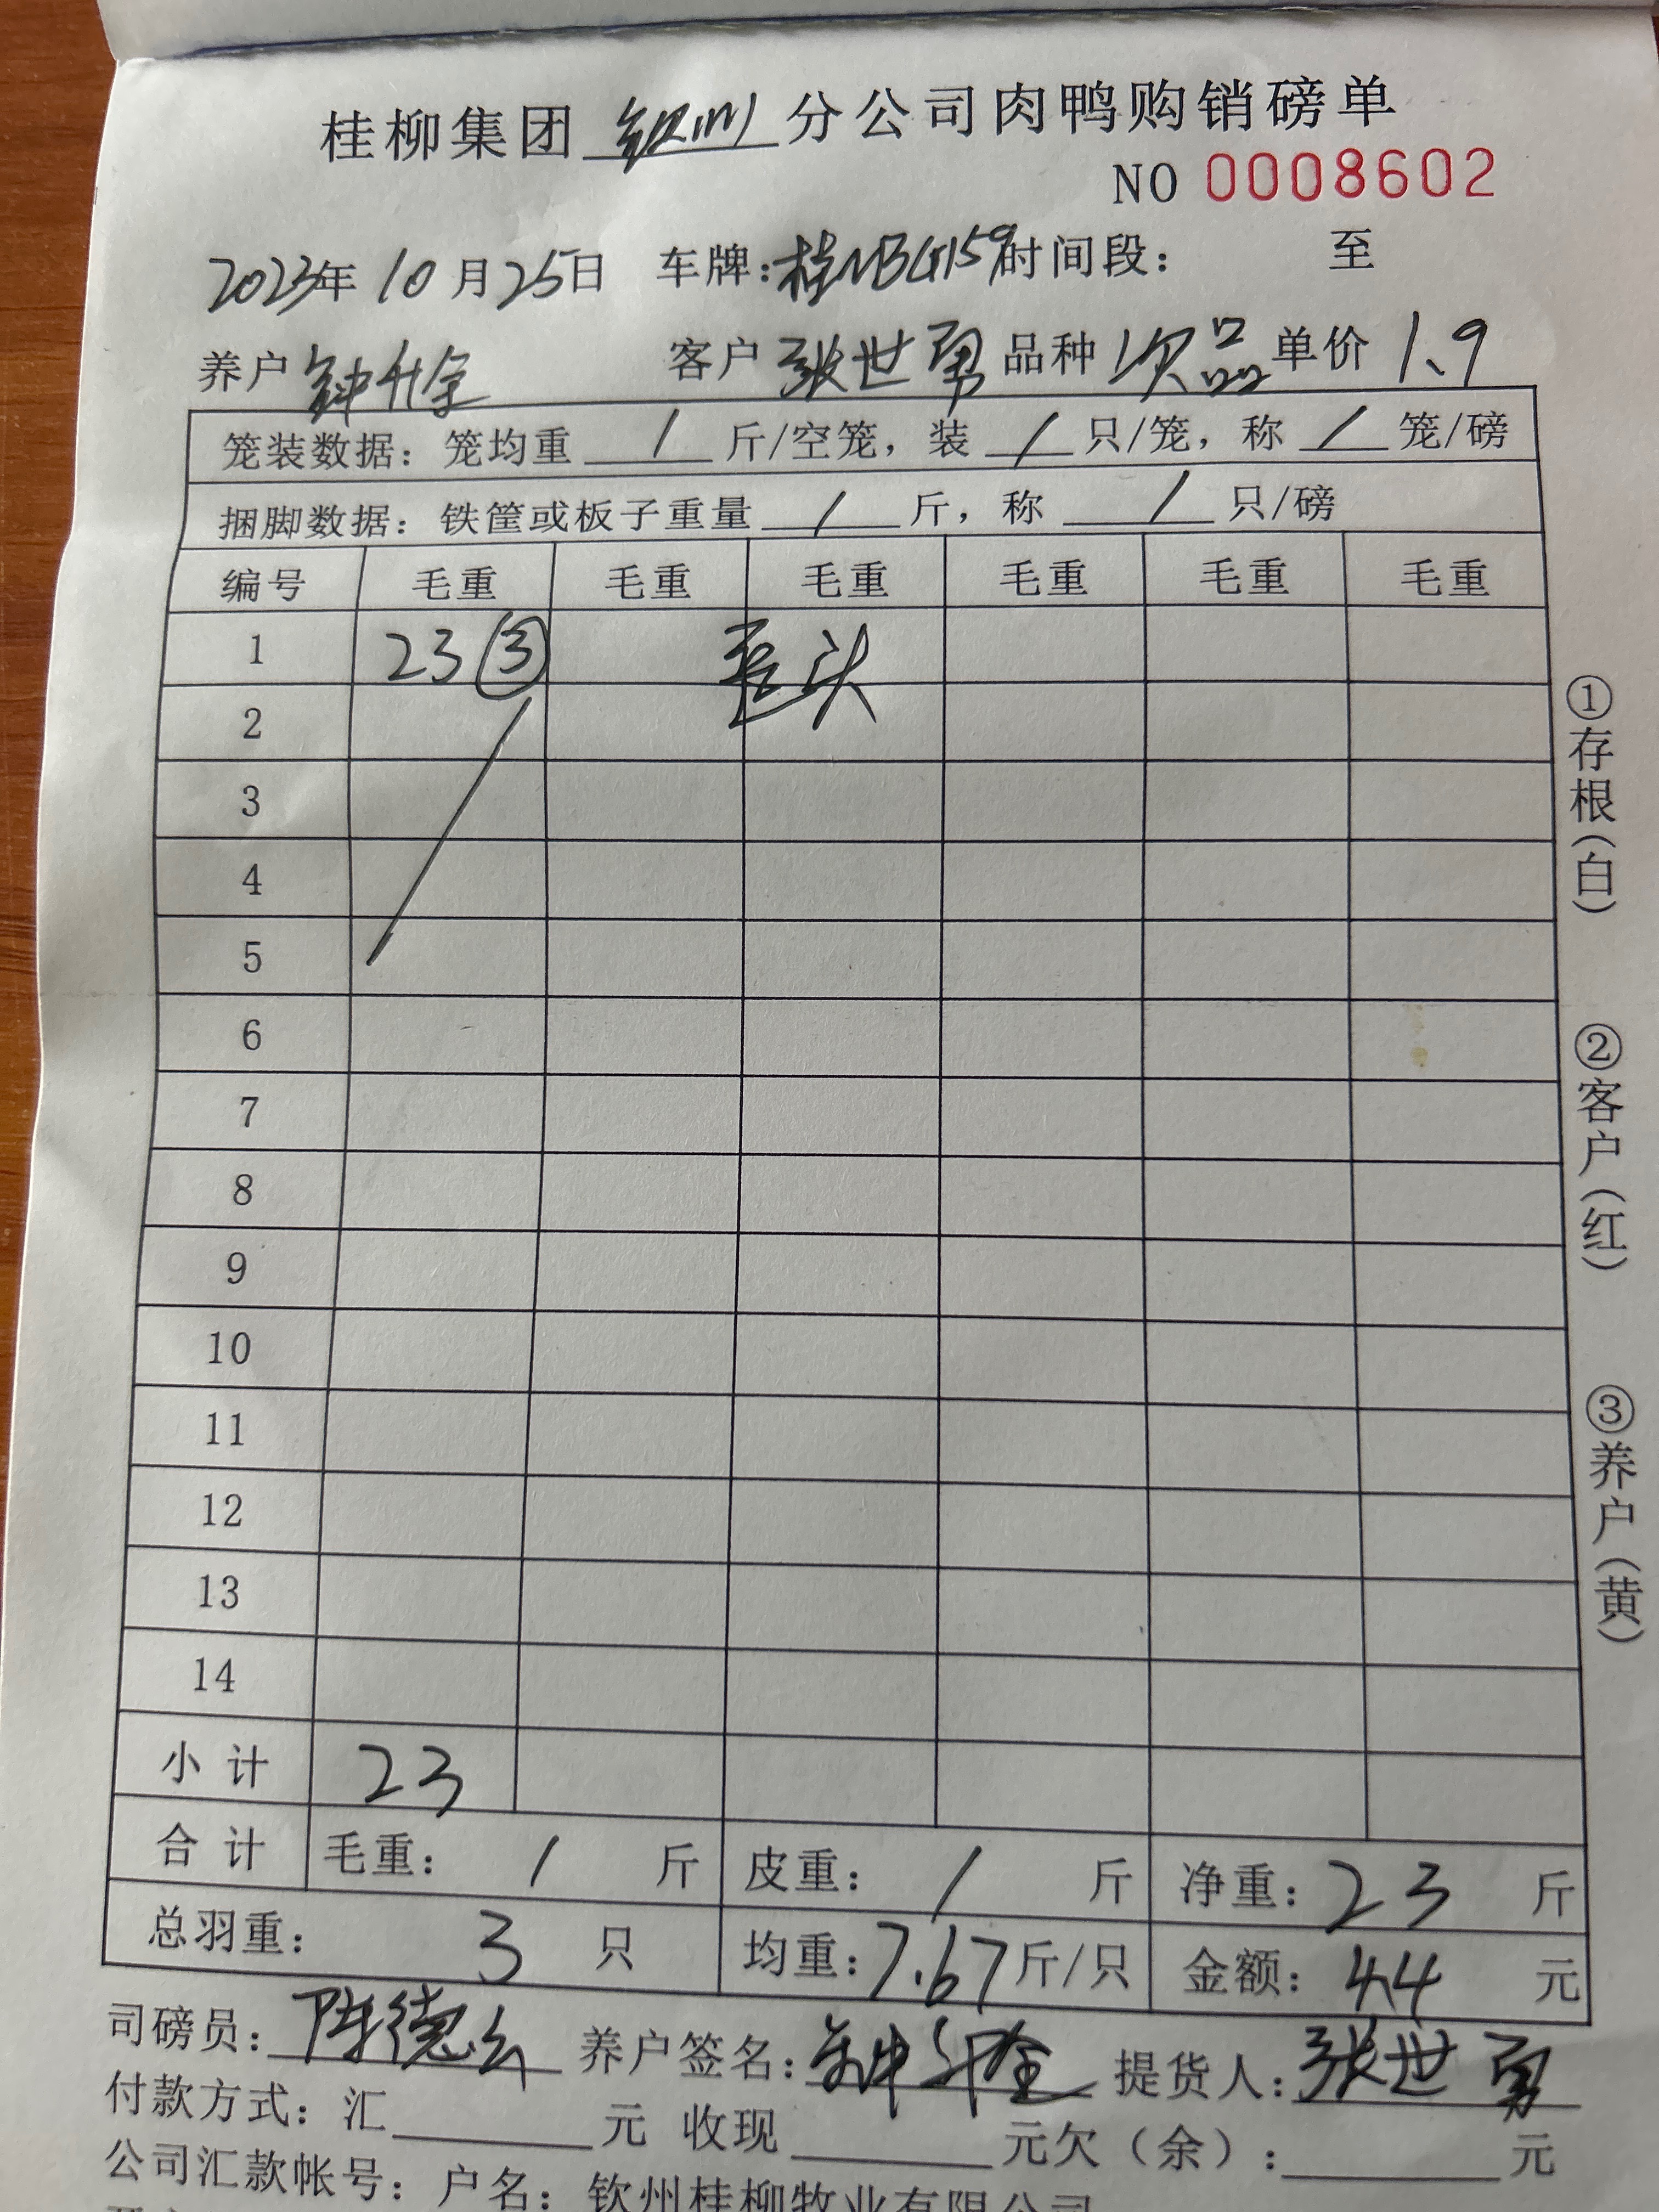 桂柳集团钦州分公司肉鸭购销磅单
NO 0008602
2023年10月25日 车牌:桂NBG159时间段： 至
养户钟升全 客户张世勇品种次品单价1.9
笼装数据：笼均重/斤/空笼，装/只/笼，称/笼/磅
捆脚数据：铁筐或板子重量/斤，称/只/磅
编号 毛重 毛重 毛重 毛重 毛重 毛重
1 23③ 歪头
2
3
4
5
6
7
8
9
10
11
12
13
14
小计 23
合计 毛重：/斤 皮重：/斤 净重：23斤
总羽重：3只 均重：7.67斤/只 金额：44元
司磅员：陈德 养户签名：钟升全 提货人：张世勇
付款方式：汇 元 收现 元欠（余）： 元
公司汇款帐号：户名：钦州桂柳牧业有限公司
①存根（白）
②客户（红）
③养户（黄）